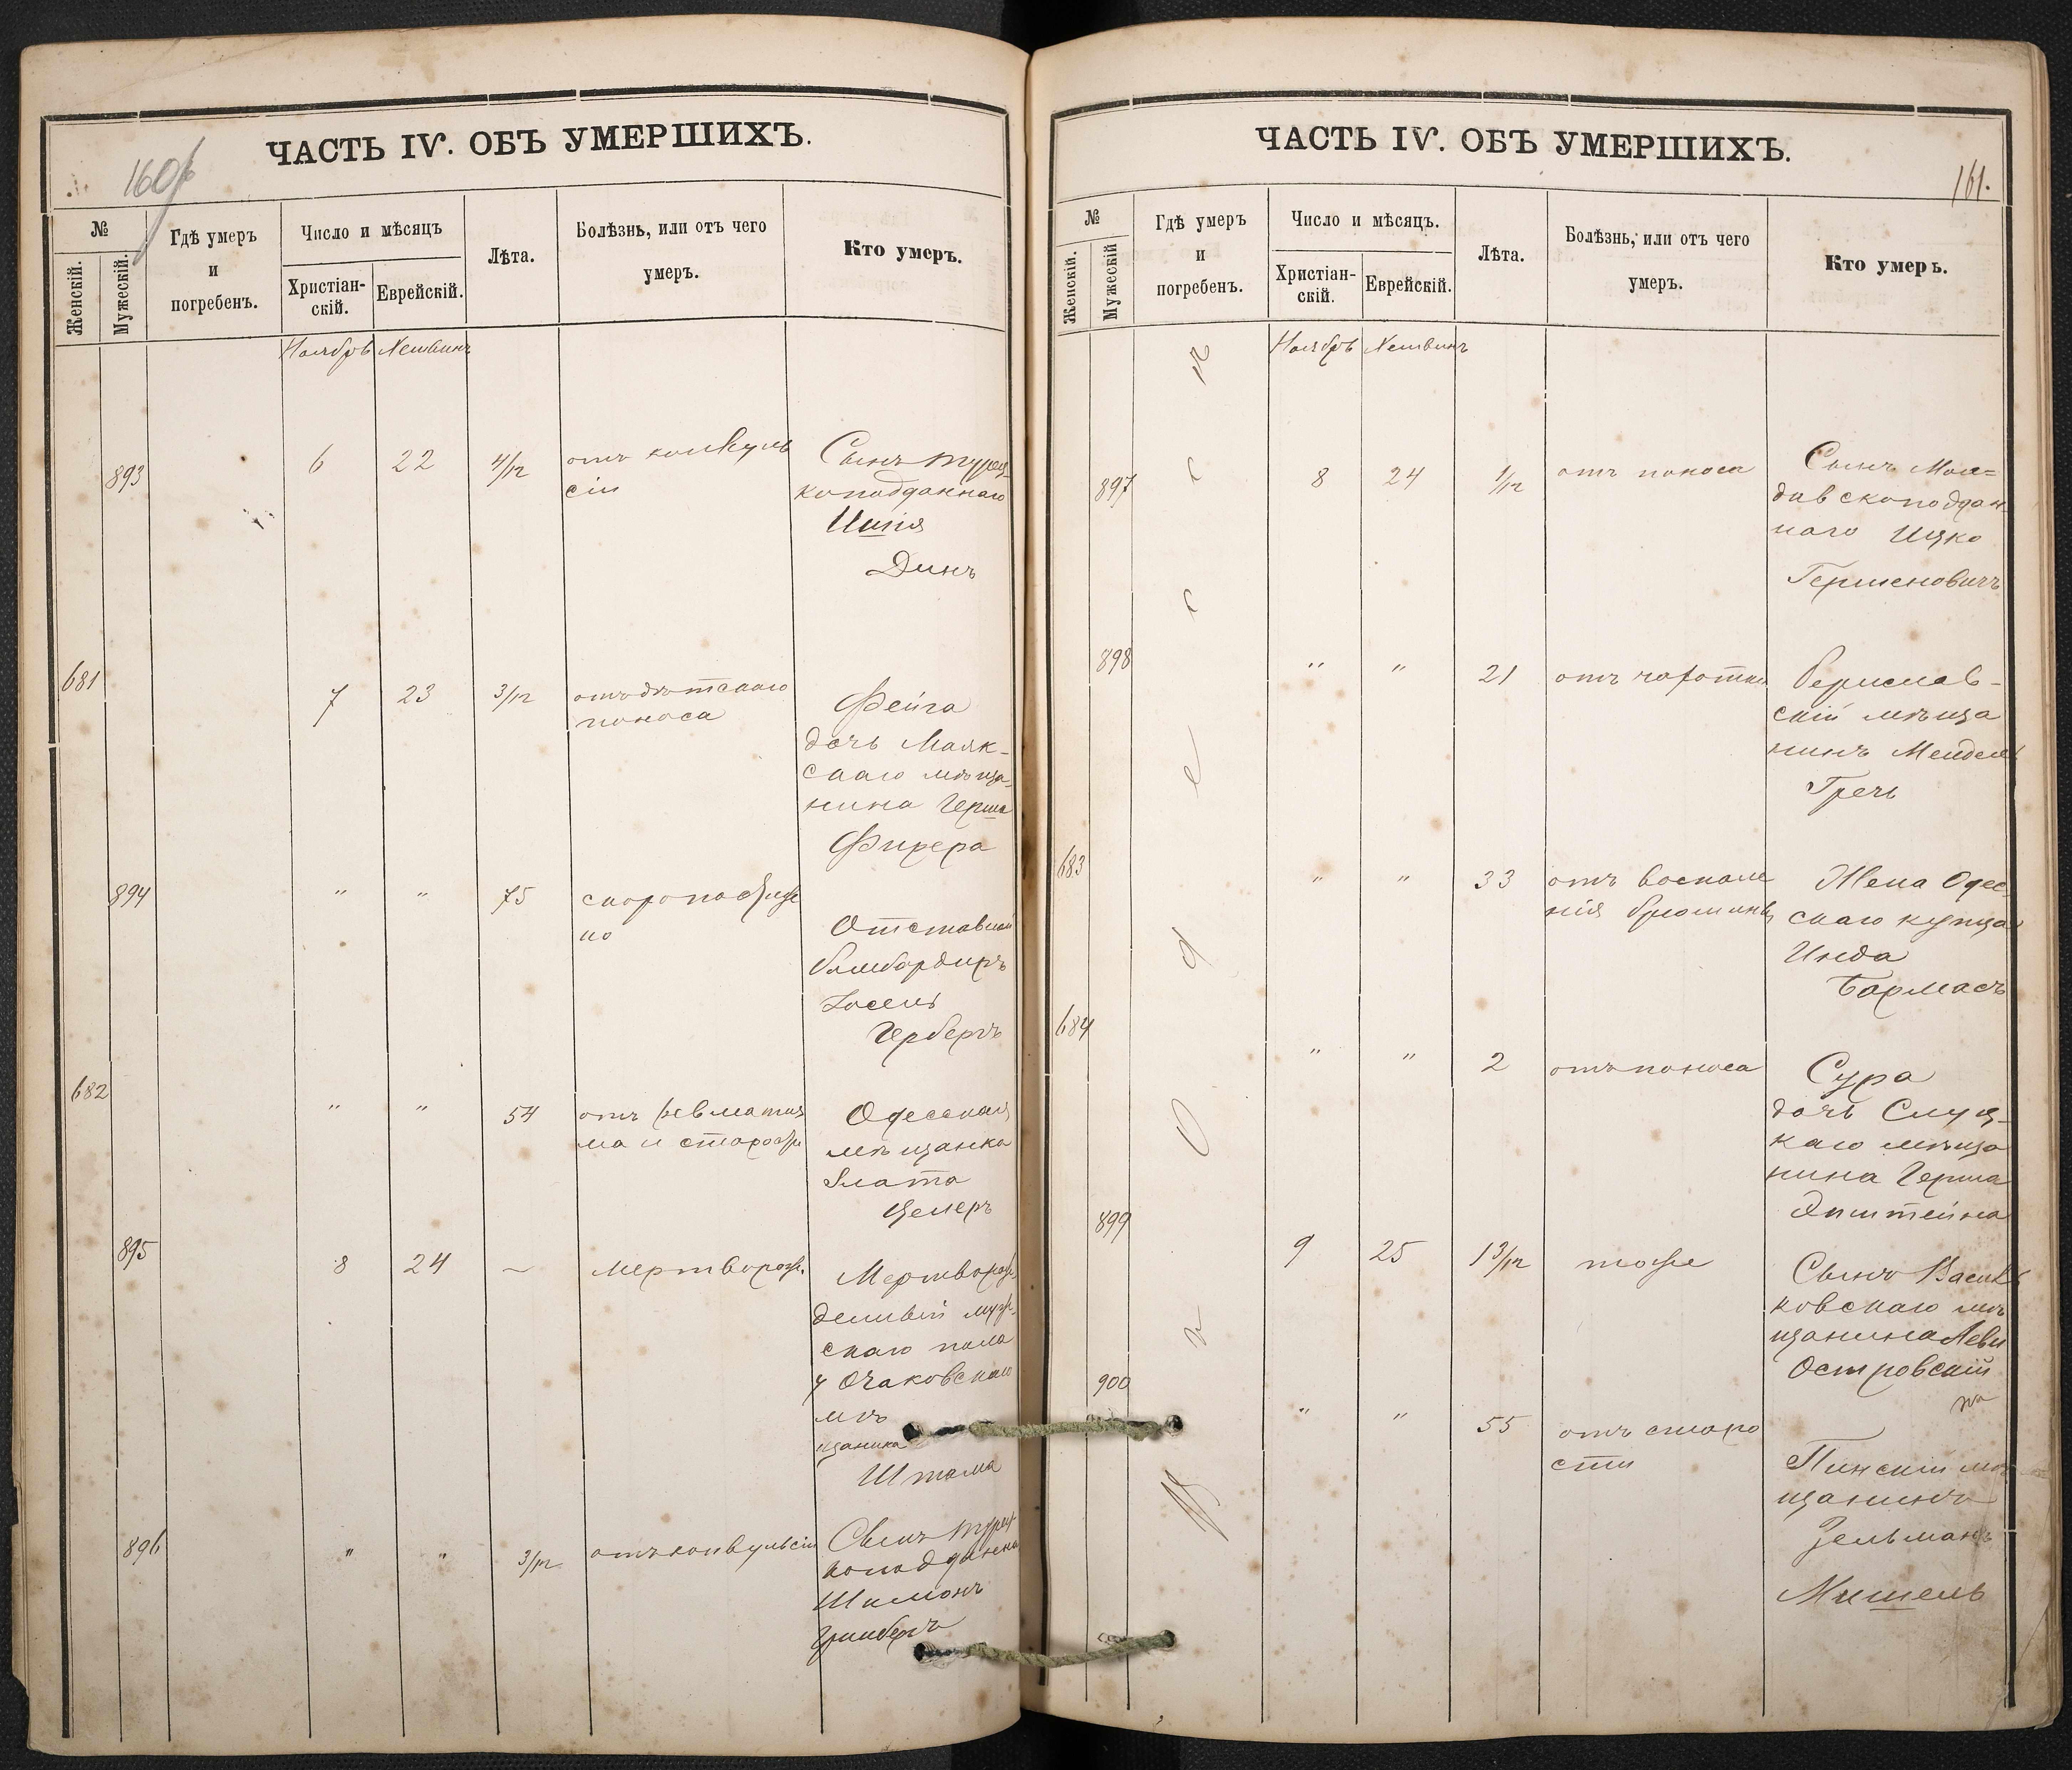 ЧАСТЬ IV. ОБЪ УМЕРШИХЪ.
160
№
Женскій.
Мужескій.
Гдѣ умеръ
и
погребенъ.
Число и мѣсяцъ
Христіан-
скій.
Еврейскій.
Лѣта.
Болѣзнь, или отъ чего
умеръ.
Кто умеръ.
Ноябрь Хешвинъ
893
6
22
4/12
отъ конвуль
сіи
Сынъ турец-
коподданнаго
Динъ
681
7
23
3/12
отъ дѣтскаго
поноса
Фейга
дочь Маяк-
скаго мѣща-
нина Герша
Фихера
894
"
"
75
скоропостиж
но
Отставной
бомбардиръ
Іосель
Герберъ
682
"
"
54
отъ ревматиз
ма и старости
Одесская
мѣщанка
Злата
Целеръ
895
8
24
~
Мертворож.
Мертворож-
денный муж-
скаго пола
у Очаковскаго
мѣ
щанина
Штама
896
"
"
3/12
отъ конвульсіи
Сынъ турец
коподданна
Шимонъ
Гринбергъ
ЧАСТЬ IV. ОБЪ УМЕРШИХЪ.
161.
№
Женскій.
Мужескій
Гдѣ умеръ
и
погребенъ.
Число и мѣсяцъ.
Христіан-
скій.
Еврейскій.
Лѣта.
Болѣзнь, или отъ чего
умеръ.
Кто умеръ.
Ноябрь Хешвинъ
897
8
24
1/12
отъ поноса
Сынъ Мол=
давскоподдан-
наго Ицко
Гершеновичъ
898
"
"
21
отъ чахотки
Берислав-
скій мѣща
нинъ Мендель
Гречъ
683
"
"
33
отъ воспале
нія брюшины
Жена Одес-
скаго купца
Инда
Бармасъ
684
"
"
2
отъ поноса
Сура
дочь Слуц-
каго мѣща
нина Герша
Эпштейна
899
9
25
1 3/12
тоже
Сынъ Василь
ковскаго мѣ
щанина Леви
Островскій
900
"
"
55
отъ старо
сти
Пинскій мѣ
щанинъ
Зельманъ
Мишель